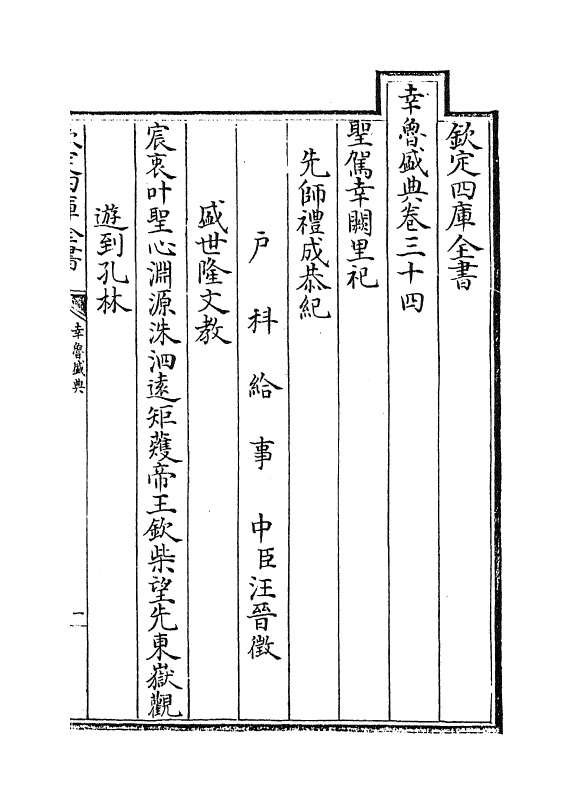 欽定四庫全書
幸魯盛典卷三十四
聖駕幸闕里祀
先師禮成恭紀
戶科給事中臣汪晉徵
盛世隆文教
宸衷叶聖心淵源洙泗遠矩蒦帝王欽柴望先東嶽觀
遊到孔林
幸魯盛典
一